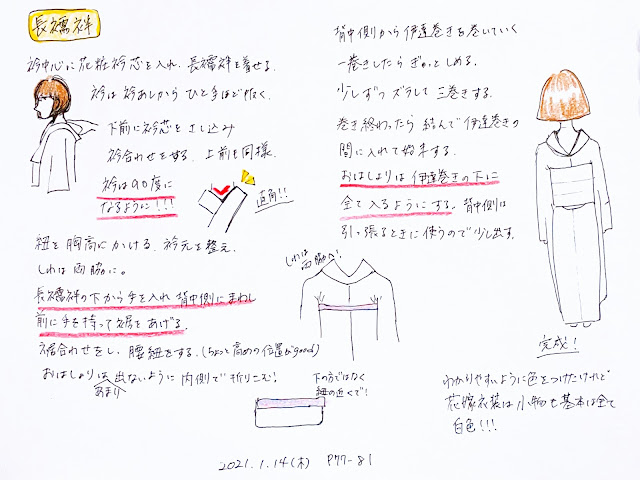 長襦袢
衿中心に花粧衿芯を入れ、長襦袢を着せる。
衿は衿あしから ひと手ほど抜く。
下前に衿芯をさし込み
衿合わせをする。上前も同様。
衿は90度に
なるように!!!
直角!!
紐を胸高にかける。衿元を整え。
しわは両脇に。
長襦袢の下から手を入れ 背中側にまわし
前に手を持って裾をあげる。
裾合わせをし、腰紐をする。(ちょっと高めの位置がgood)
おはしょりは出ないように 内側で折りこむ!
あまり
下の方ではなく
紐の近くで!
しわは
両脇へ!
背中側から伊達巻きを巻いていく
一巻きしたら ぎゅっと しめる。
少しずつ ズラして 三巻きする。
巻き終わったら 結んで伊達巻きの
間に入れて始末する。
おはしょりは 伊達巻きの下に
全て入るようにする。背中側は
引っ張るときに使うので少し出す。
完成!
わかりやすいように色をつけたけれど
花嫁衣装は小物も基本は全て
白色!!!
2021.1.14(木) P77-81